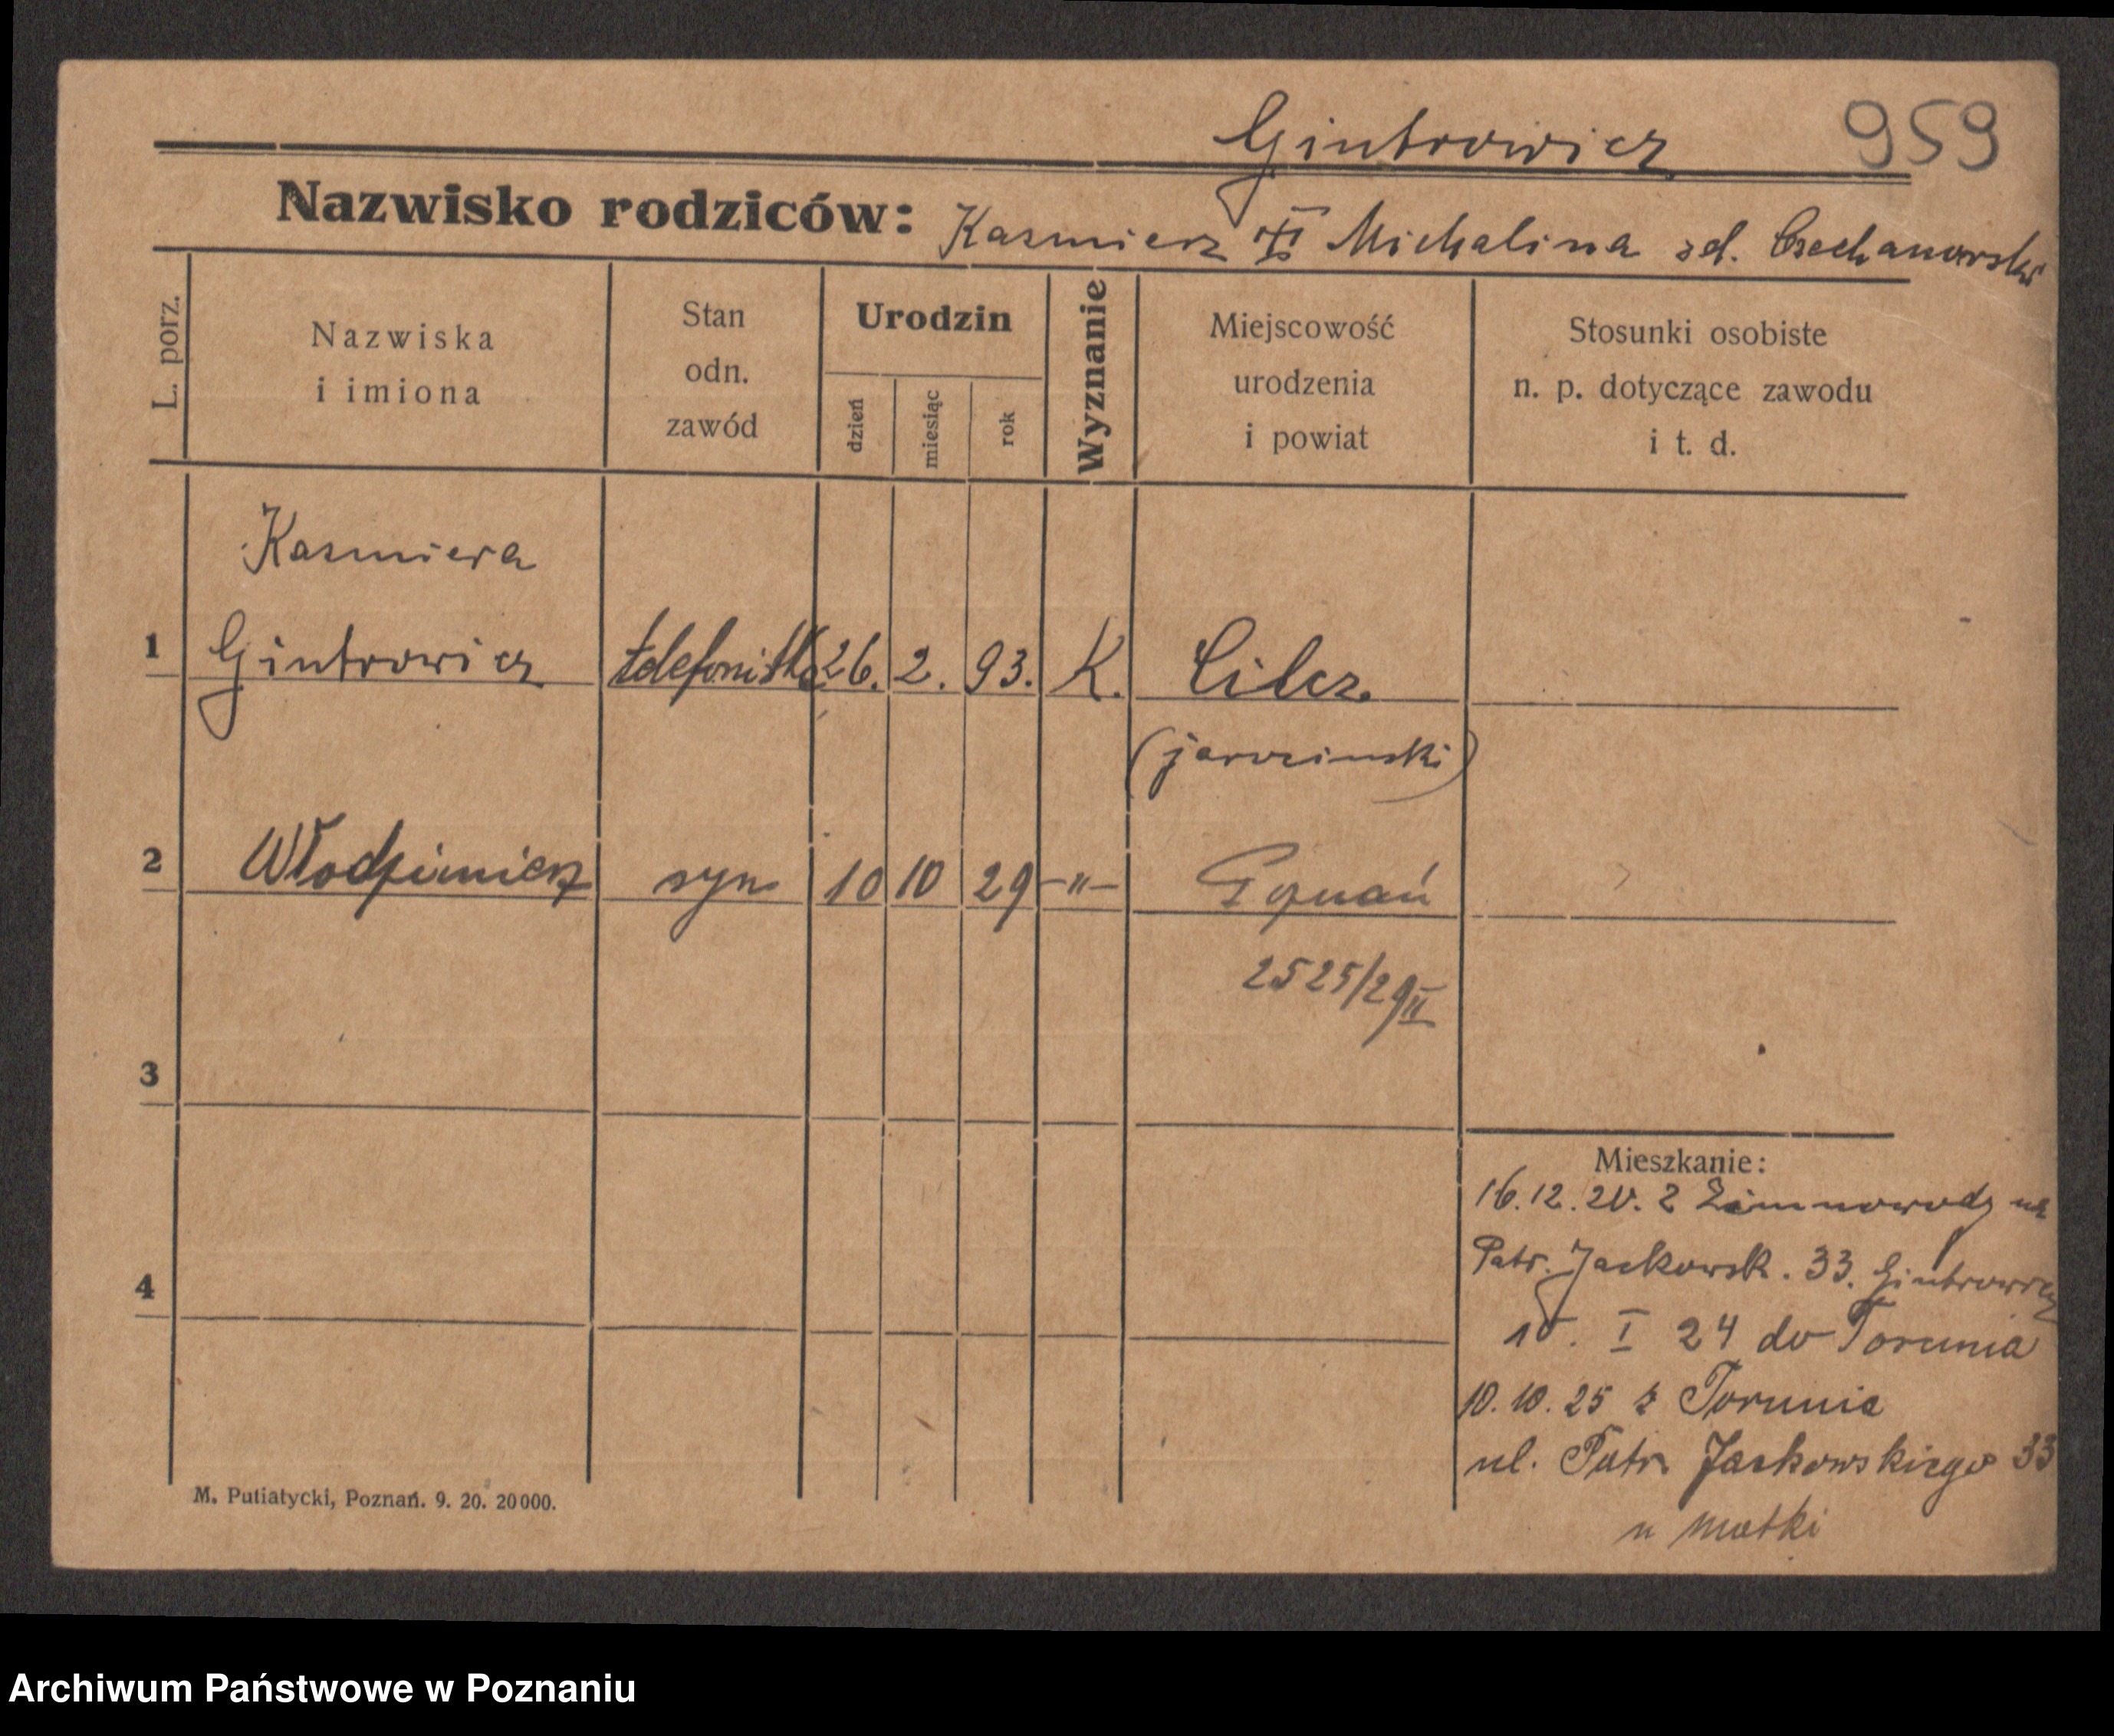 Gintrowicz 959
Nazwisko rodziców: Kazmierz Michalina zd. Czechanowska
L. porz.
Nazwiska
i imiona
Stan
odn.
zawód
Urodzin
dzień
miesiąc
rok
Wyznanie
Miejscowość
urodzenia
i powiat
Stosunki osobiste
n. p. dotyczące zawodu
i t. d.
Kazmiera
1 Gintrowicz telefonistka 26. 2. 93. K. Cilcz.
(jarocinski)
2 Włodzimierz syn 10 10 29 -"- Poznań
2525/29 II
3
4
Mieszkanie:
16.12.20. z Zimnowody na
Patr. Jackowsk. 33. Gintrowicz
I 24 do Torunia
10.10.25 z Torunia
ul. Patr. Jackowskiego 33
u matki
M. Putiatycki, Poznań. 9. 20. 20000.
Archiwum Państwowe w Poznaniu